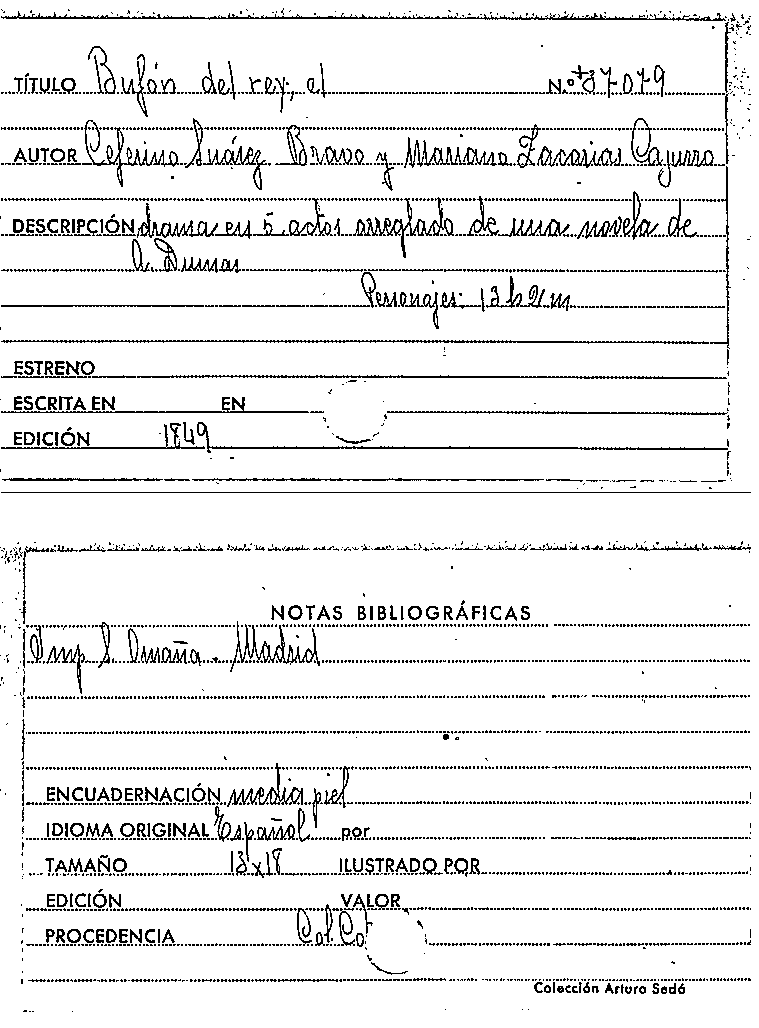 TÍTULO Bufón del rey, el N.º 37079
AUTOR Ceferino Suárez Bravo y Mariano Zacarias Cazurro
DESCRIPCIÓN drama en 5 actos arreglado de una novela de
A. Dumas
Personajes: 13 h 2 m
ESTRENO
ESCRITA EN EN
EDICIÓN 1849
NOTAS BIBLIOGRÁFICAS
Imp S. Omaña. Madrid
ENCUADERNACIÓN media piel
IDIOMA ORIGINAL Español por
TAMAÑO 13x18 ILUSTRADO POR
EDICIÓN VALOR
PROCEDENCIA Col. Cot
Colección Arturo Sedó